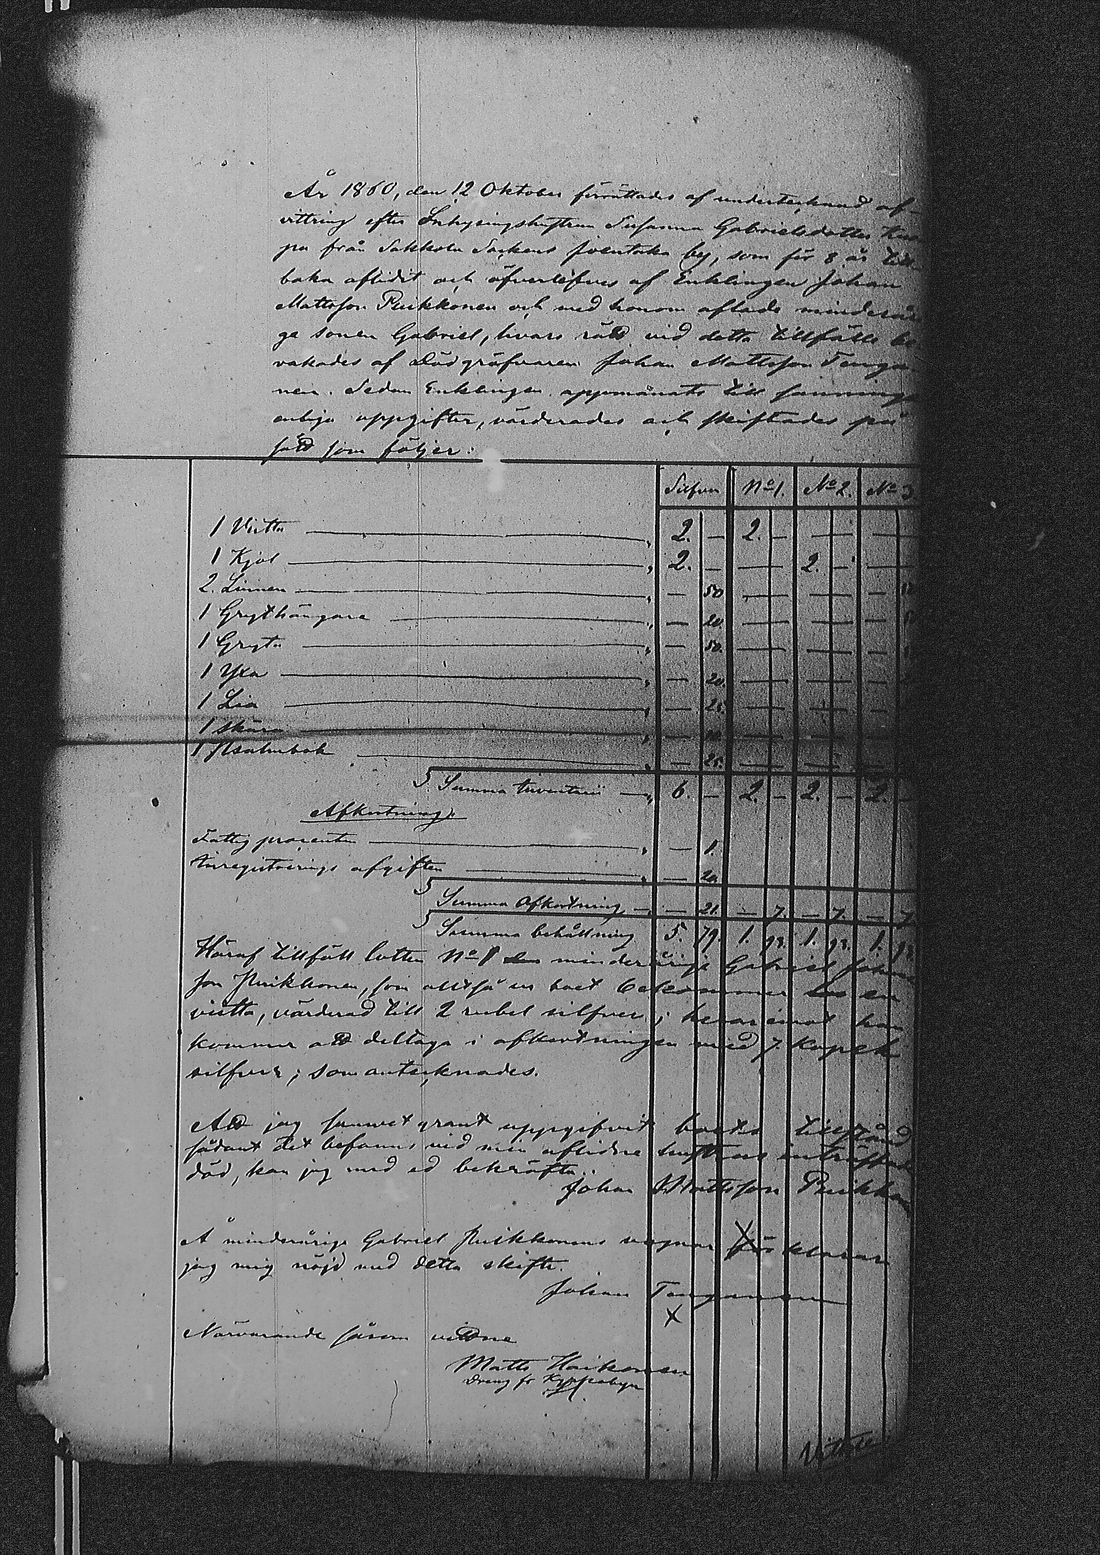 År 1860, den 12 Oktober förrättades af undertecknad af-
vittring efter Inhysingshustrun Susanna Gabrielsdotter
pa från Sakkola Sockens by, som för 8 år till
baka aflidit och öfverlefves af Enklingen Johan
Mattsson Ruikkonen och med honom aflade minderåri
ge sonen Gabriel, hvars rätt vid detta tillfälle be
vakades af Dödgräfvaren Johan Mattsson Tenga
nen. Sedan Enklingen uppmanats till sannings
enliga uppgifter, värderades och skiftades på
sätt som följer:
Silfver No 1. No 2. No 3
1 Viitta 2. — 2. — — — — —
1 Kjol 2. — — — 2. — — —
2. Linnen — 50 — — — — — 50
1 Grythängare — 20. — — — — —
1 Gryta — 50. — — — — —
1 Yxa — 20. — — — — —
1 Lia — 25. — — — — —
1 Skära — — — — — —
1 Psalmbok — 25. — — — — —
Summa Inventarii — 6. — 2. — 2. — 2. —
Afkortning:
Fattig procenten — 1.
Inregistrerings afgiften — 20
Summa Afkortning — — 21. — 7. — 7. — 7.
Summa behållning 5. 79. 1. 93. 1. 93. 1. 93
Häraf tillföll lotten No 1 minderårige Gabriel Johans
son Ruikkonen, som alltså ur boet bekommer en
viitta, värderad till 2 rubel silfver; hvaremot han
kommer att deltaga i afkortningen med 7 Kopek
silfver; som antecknades.
Att jag samvetsgrant uppgifvit boets tillstånd
sådant det befanns vid min aflidne hustrus inträffade
död, kan jag med ed bekräfta:
Johan Mattsson Ruikkonen
X
Å minderårige Gabriel Ruikkonens vägnar förklarar
jag mig nöjd med detta skifte.
Johan Tenganen
X
Närvarande såsom vittne
Matts Haikonen
Dreng fr